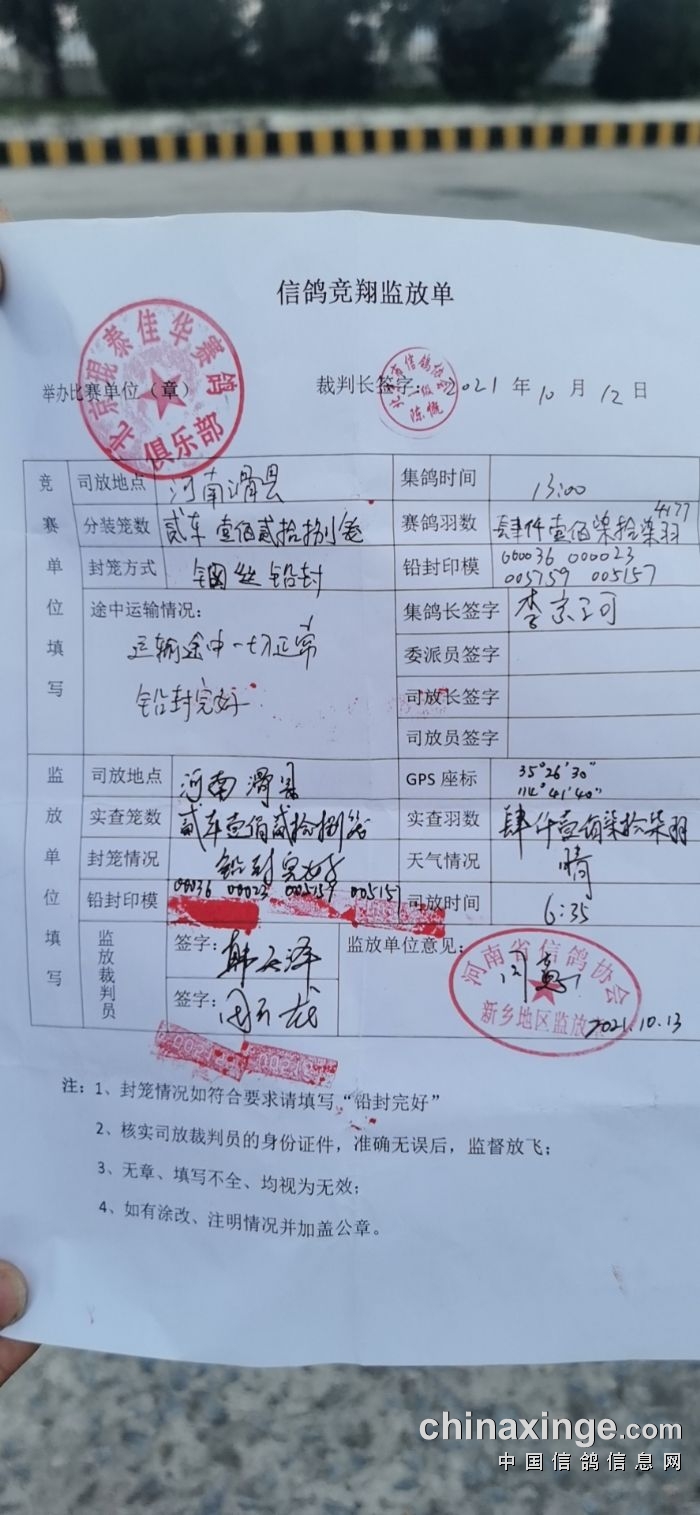 信鸽竞翔监放单
北京琨泰佳华赛鸽
俱乐部
举办比赛单位（章）
裁判长签字： 2021 年 10 月 12 日
信鸽协
陈
竞赛单位填写
司放地点 河南滑县 集鸽时间 13:00
4177
分装笼数 贰车壹佰贰拾捌笼 赛鸽羽数 肆仟壹佰柒拾柒羽
封笼方式 钢丝铅封 铅封印模 000036 000023
005759 005157
途中运输情况： 集鸽长签字 李京可
运输途中一切正常 委派员签字
铅封完好 司放长签字
司放员签字
监放单位填写
司放地点 河南滑县 GPS 座标 35°26′30″
114°41′40″
实查笼数 贰车壹佰贰拾捌笼 实查羽数 肆仟壹佰柒拾柒羽
封笼情况 铅封完好 天气情况 晴
铅封印模 00036 00023 005159 005157 司放时间 6:35
监放裁判员
签字： 韩天泽 监放单位意见：
签字：
河南省信鸽协会
新乡地区监放
2021.10.13
注：1、封笼情况如符合要求请填写“铅封完好”
2、核实司放裁判员的身份证件，准确无误后，监督放飞；
3、无章、填写不全、均视为无效；
4、如有涂改、注明情况并加盖公章。
chinaxinge.com
中国信鸽信息网